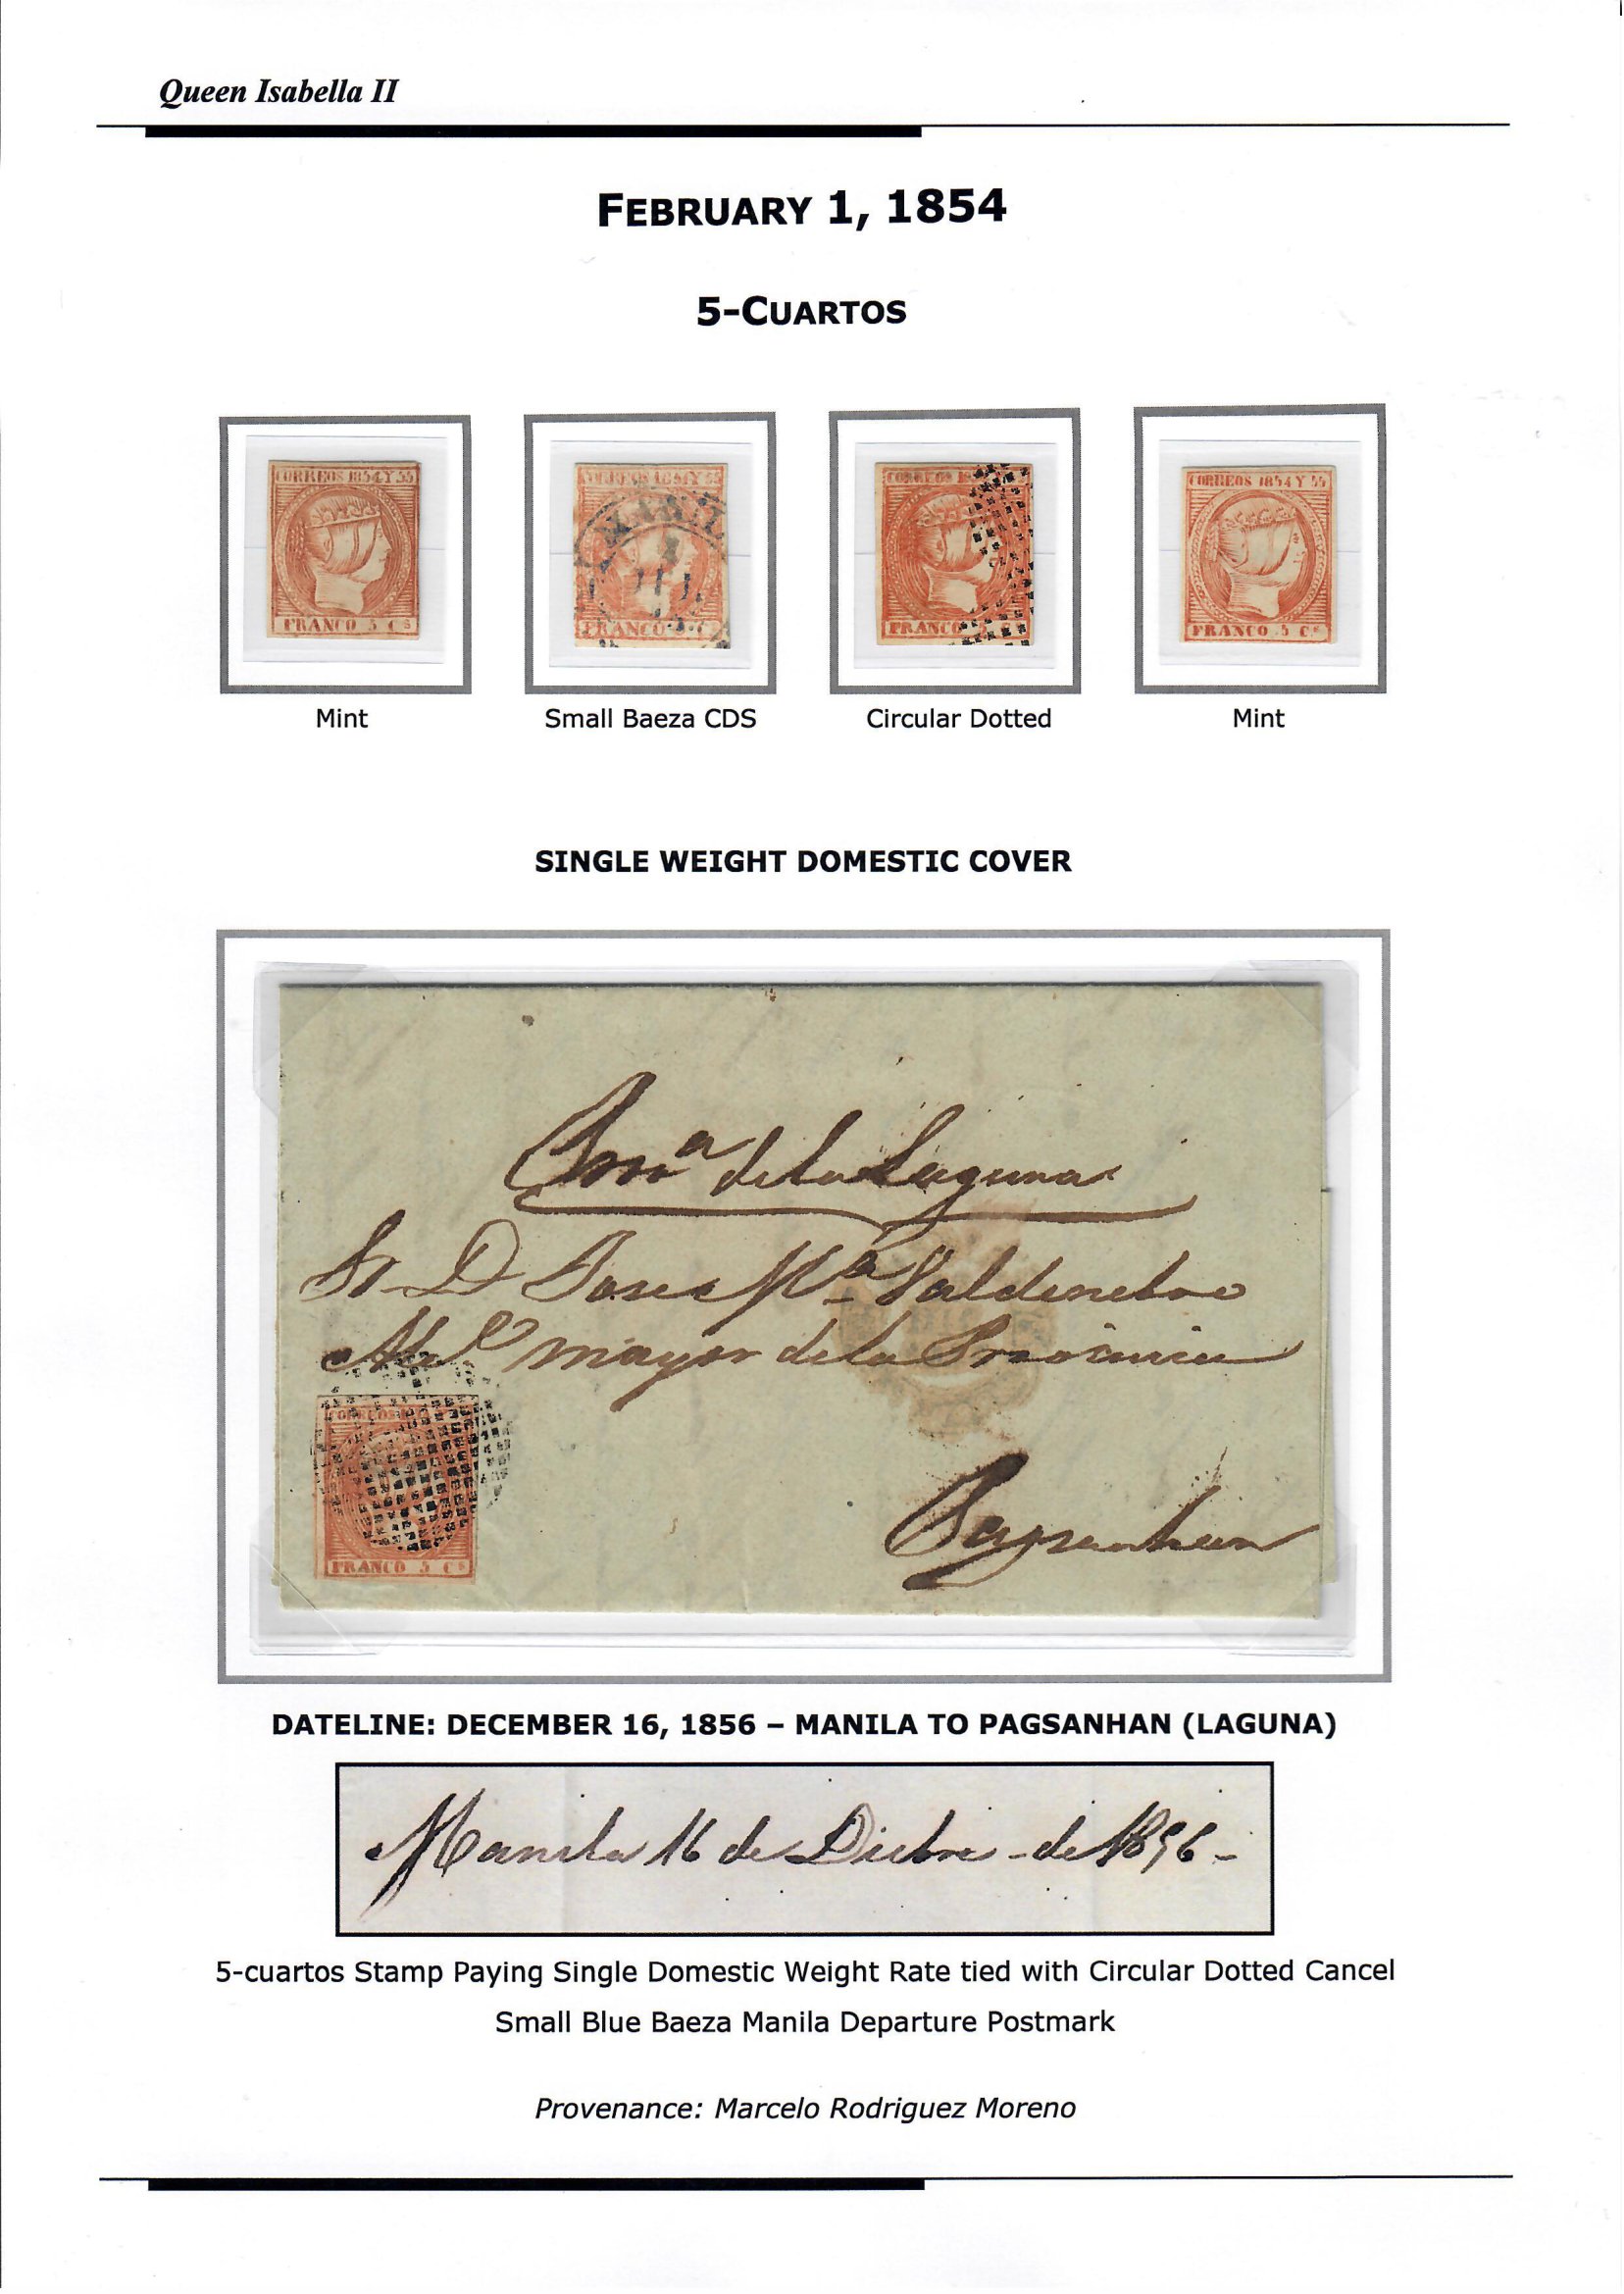 Queen Isabella II
FEBRUARY 1, 1854
5-CUARTOS
CORREOS 1854 Y 55
FRANCO 5 Cs
CORREOS 1854 Y 55
MANILA
FRANCO 5 C
CORREOS 1
FRANCO 5 C
CORREOS 1854 Y 55
FRANCO 5 Cs
Mint
Small Baeza CDS
Circular Dotted
Mint
SINGLE WEIGHT DOMESTIC COVER
de la Laguna
Sr D Jose Ma Valdenebro
mayor de la Provincia
CORREOS
FRANCO 5 Cs
Pagsanhan
DATELINE: DECEMBER 16, 1856 – MANILA TO PAGSANHAN (LAGUNA)
Manila 16 de Dicbre - de 1856 -
5-cuartos Stamp Paying Single Domestic Weight Rate tied with Circular Dotted Cancel
Small Blue Baeza Manila Departure Postmark
Provenance: Marcelo Rodriguez Moreno